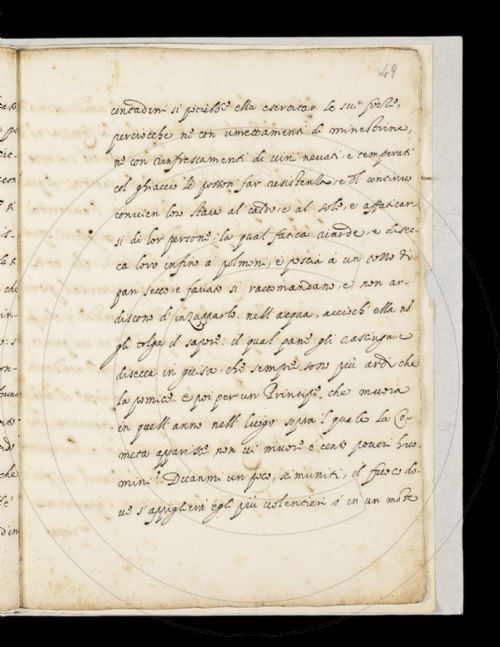 49
contadini si potrebbe ella esercitar le sue forze,
perciocche ne con umettamenti di minestrine,
ne con rinfrescamenti di vini nevati e temperati
col ghiaccio le posson far resistenza, e di continuo
convien loro stare al caldo, e al sole, e affaticar
si di lor persone: la qual fatica riarde, e disec-
ca loro infino a polmoni, e poscia a un cotto di
pan secco, e favate si raccomandano, e non ar-
discono d'inzupparlo nell'acqua, acciochè ella nō
gli tolga il sapore: il qual pane gli rasciuga, e
disecca in guisa, che sempre sono più aridi che
la pomice. e poi per un Principe che muoia
in quell'anno nell luogo sopra 'l quale la Co-
meta apparisce non vi muore e cento poveri huo-
mini? Dicanmi un poco, se muniti, il fuoco do-
ve s'appiglierà egli più volentieri o in un monte